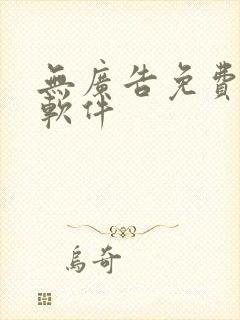 無廣告免費
軟件
烏奇